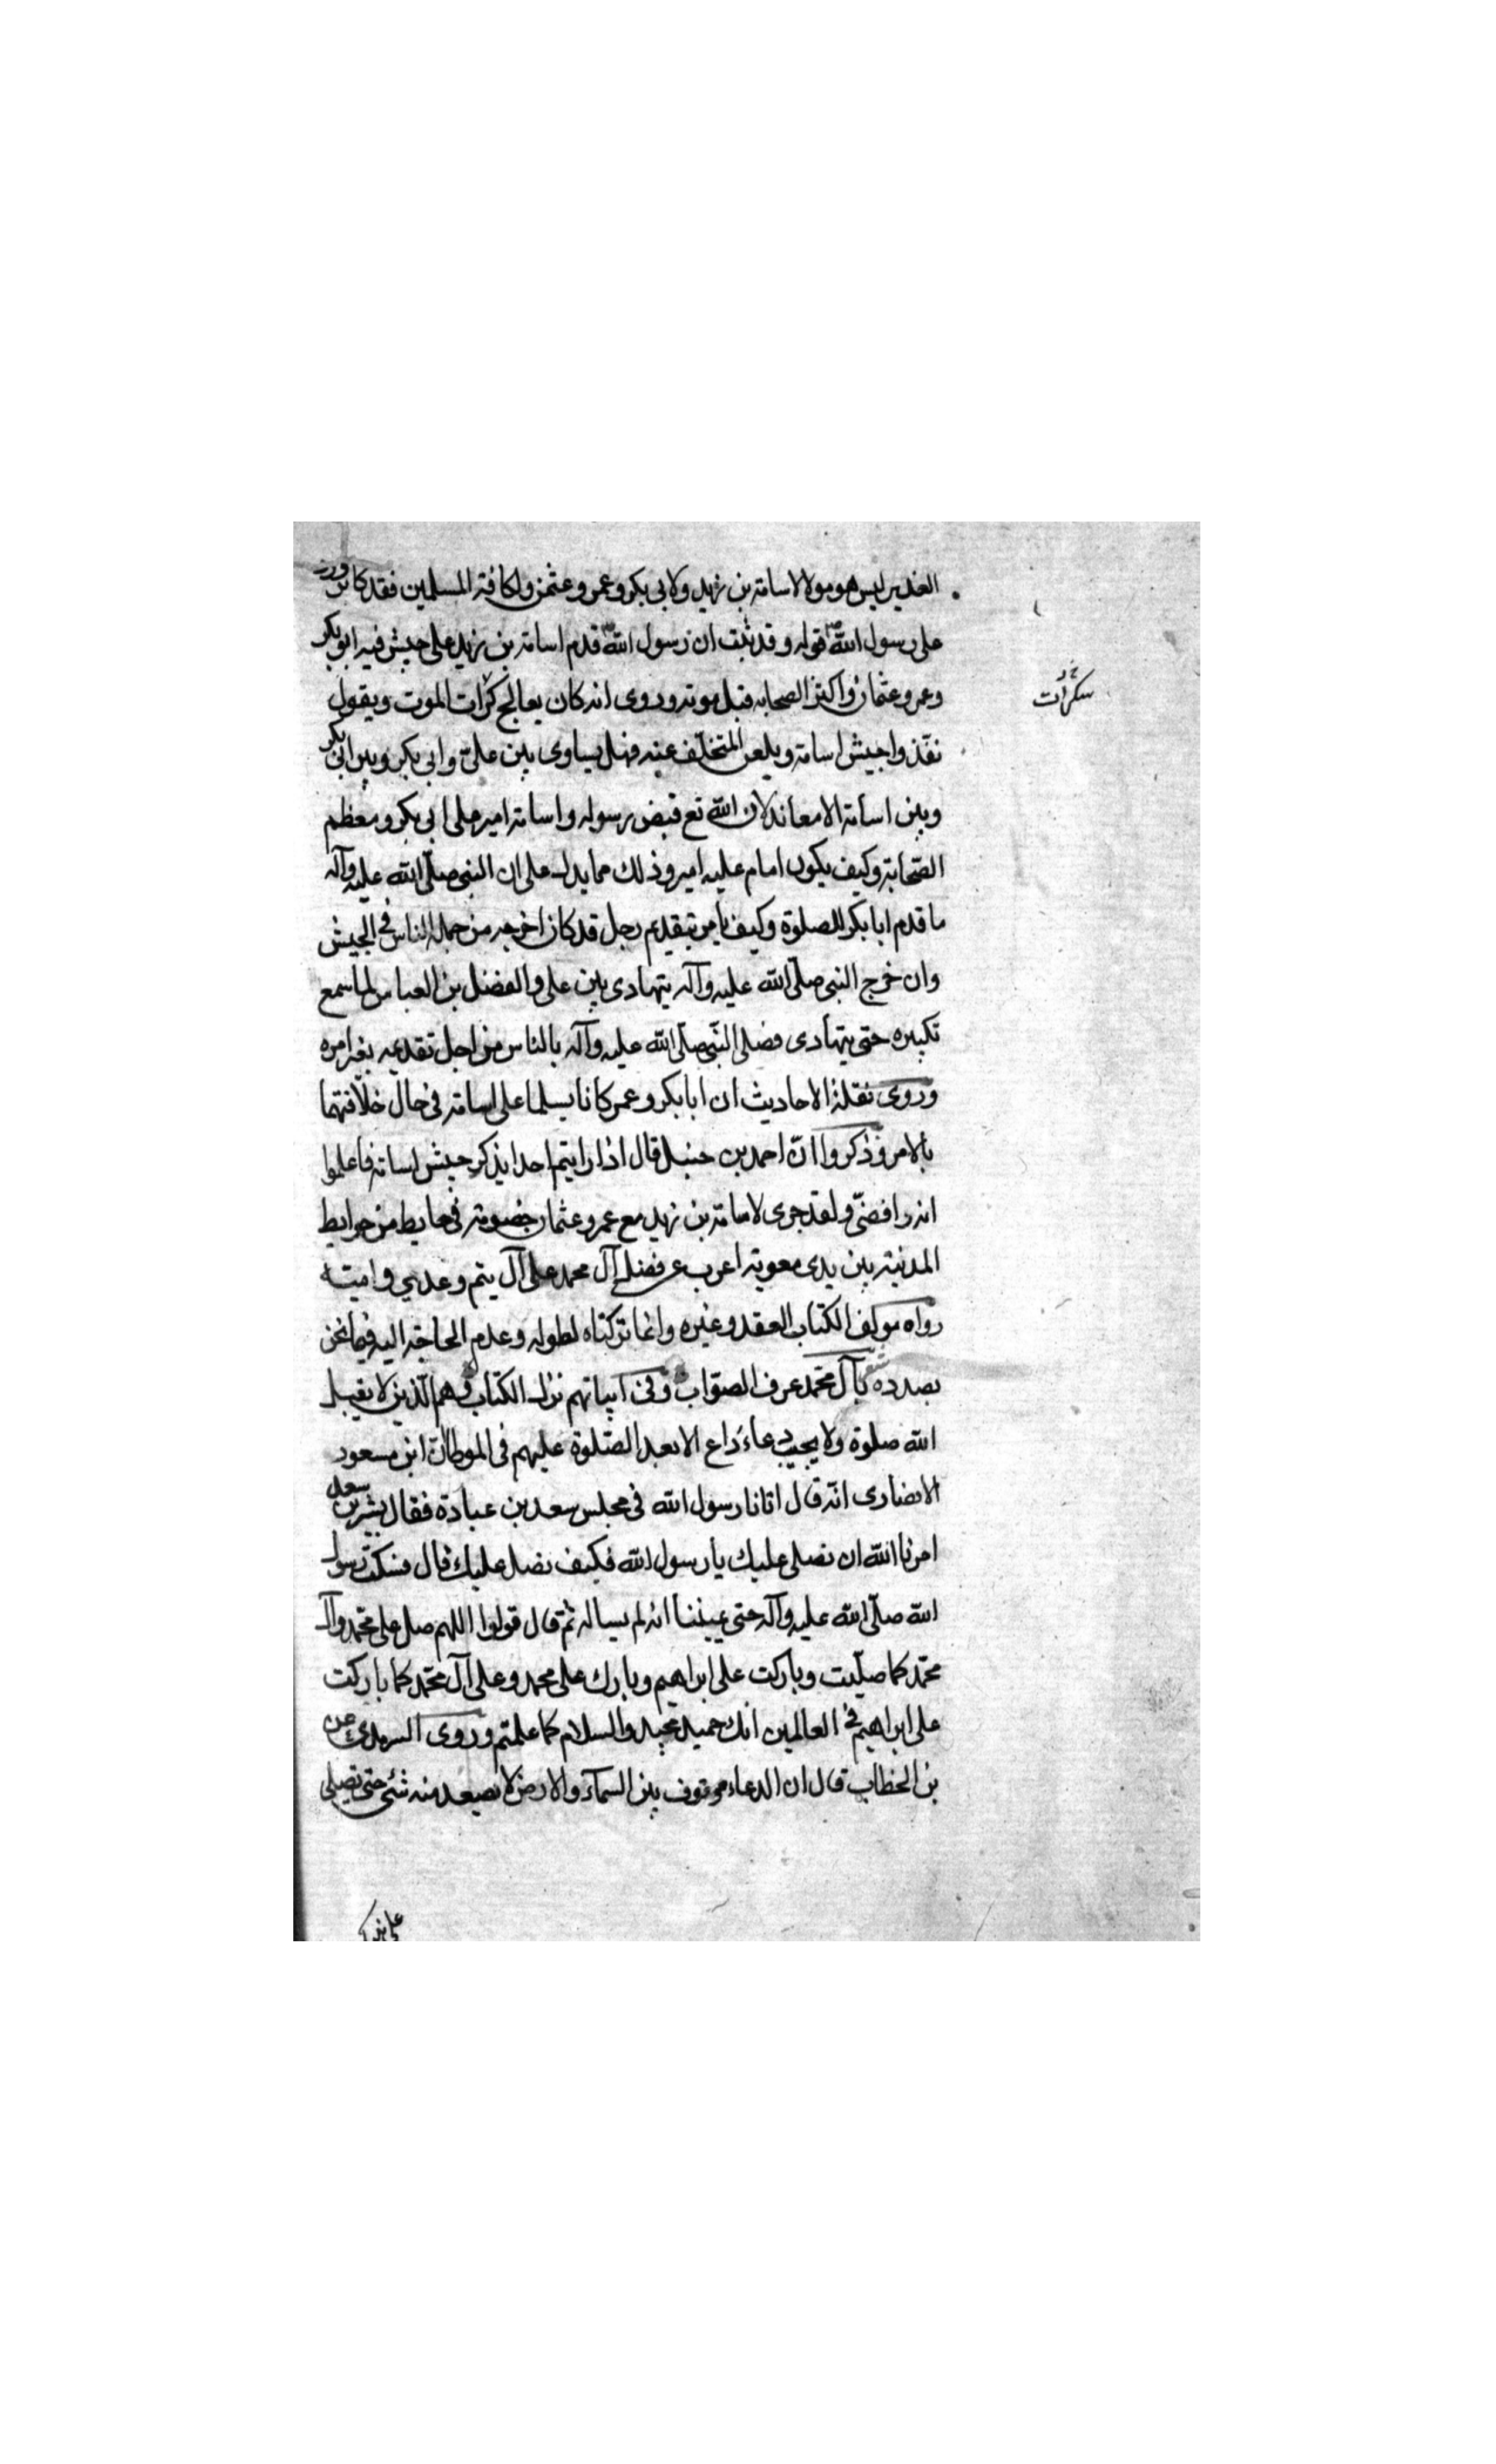 الغدير ليس هو مولا لاسامة بن زيد ولا بى بكر وعمر وعثمن ولكافة المسلمين فقد كابر ورد
على رسول الله ص قوله وقد ثبت ان رسول الله ص قدم اسامة بن زيد على جيش فيه ابو بكر
وعمر وعثمان واكثر الصحابه قبل موته وروى انه كان يعالج كرات الموت ويقول
سكرات
نفذوا جيش اسامة ويلعن المتخلف عنه فهل يساوى بين على وابى بكر وبين ابى بكر
وبين اسامة الا معاند لان الله تع قبض رسوله واسامة امير على ابى بكر ومعظم
الصحابة وكيف يكون امام عليه امير وذلك مما يدل على ان النبى صلى الله عليه وآله
ما قدم ابا بكر للصلوة وكيف يامر بتقديم رجل قد كان اخرجه من جملة الناس فى الجيش
وان خرج النبى صلى الله عليه وآله يتهادى بين على والفضل بن العباس لما سمع
تكبيره حتى يتهادى فصلى النبى صلى الله عليه وآله بالناس من اجل تقدمه بغير امره
وروى نقلة الاحاديث ان ابا بكر وعمر كانا يسلما على اسامة فى حال خلافتهما
بالامر وذكروا ان احمد بن حنبل قال اذا رايتم احدا يذكر جيش اسامة فاعلموا
انه رافضى ولقد جرى لاسامة بن زيد مع عمرو عثمان خصومة فى حايط من حوايط
المدنية بين يدى معوية اعرب عن فضل آل محمد على آل يتم وعدي وامية
رواه مولف الكتاب العقد وغيره وانما تركناه لطوله وعدم الحاجة اليه فيما نحن
بصدده شعر بآل محمد عرف الصواب وفى ابياتهم نزل الكتاب وهم الذين لا يقبل
الله صلوة ولا يجيب دعاء داع الا بعد الصلوة عليهم فى الموطا ان ابن مسعود
الانصارى انه قال اتانا رسول الله فى مجلس سعد بن عبادة فقال بشر بن سعد
امرنا الله ان نصلى عليك يا رسول الله فكيف نصل عليك قال فسكت رسول
الله صلى الله عليه وآله حتى انه لم يساله ثم قال قولوا اللهم صل على محمد وآل
محمد كما صليت وباركت على ابراهيم وبارك على محمد وعلى آل محمد كما باركت
على ابراهيم فى العالمين انك حميد مجيد والسلام كما علمتم وروى عن
بن الخطاب قال ان الدعاء موقوف بين السماء والارض لا يصعد منه شئ حتى تصلى